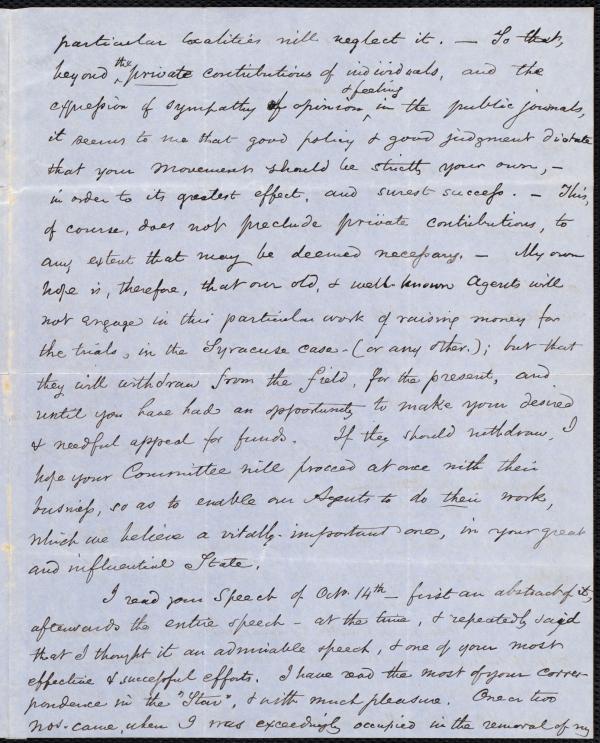 particular localities will neglect it. — So that,
beyond the private contributions of individuals, and the
expression of sympathy & of opinion & feeling in the public journals,
it seems to me that good policy & good judgment dictate
that your movements should be strictly your own, –
in order to its greatest effect, and surest success. – This,
of course, does not preclude private contributions, to
any extent that may be deemed necessary. – My own
hope is, therefore, that our old, & well-known Agents will
not engage in this particular work of raising money for
the trials, in the Syracuse case – (or any other.); but that
they will withdraw from the field, for the present, and
until you have had an opportunity to make your desired
& needful appeal for funds. If they should withdraw, I
hope your Committee will proceed at once with their
business, so as to enable our Agents to do their work,
which we believe a vitally-important one, in your great
and influential State.
I read your Speech of Oct. 14th – first an abstract of it,
afterwards the entire speech – at the time, & repeatedly said
that I thought it an admirable speech, & one of your most
effective & successful efforts. I have read the most of your corres-
pondence in the "Star", & with much pleasure. One or two
Nos. came, when I was exceedingly occupied in the removal of my